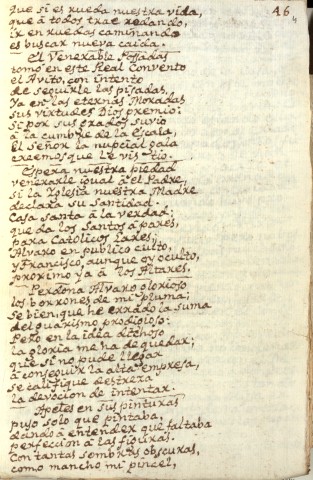 46
que si es rueda nuestra vida,
que à todos trae rodando,
ir en ruedas caminando
es buscar nueva caida.
El Venerable Possadas
tomò en este Real Convento
el Avito, con intento
de seguirle las pisadas,
Ya en las eternas Moradas
sus virtudes Dios premiò:
Si por sus grados suviò
à la cumbre de la Escala,
El Señor la nupcial gala
creemos que le vistiò.
Espera nuestra piedad
venerarle igual à el Padre,
si la Yglesia nuestra Madre
declara su Santidad:
Casa santa à la verdad;
que da los Santos à pares,
para Catolicos Lares,
Alvaro en publico culto,
y Francisco, aunque oy oculto,
proximo ya à los Altares.
Perdona Alvaro glorioso
los borrones de mi pluma;
Se bien, que hè errado la suma
del guarismo prodigioso:
Pero en la idea dichoso
la gloria me ha de quedar;
que si no pude llegar
à conseguir la alta empresa,
se califique destreza
la devocion de intentar.
Apeles en sus pinturas
puso solo que pintaba,
dando à entender que faltaba
perfeccion à las figuras.
Con tantas sombras obscuras,
como manchò mi pincel,